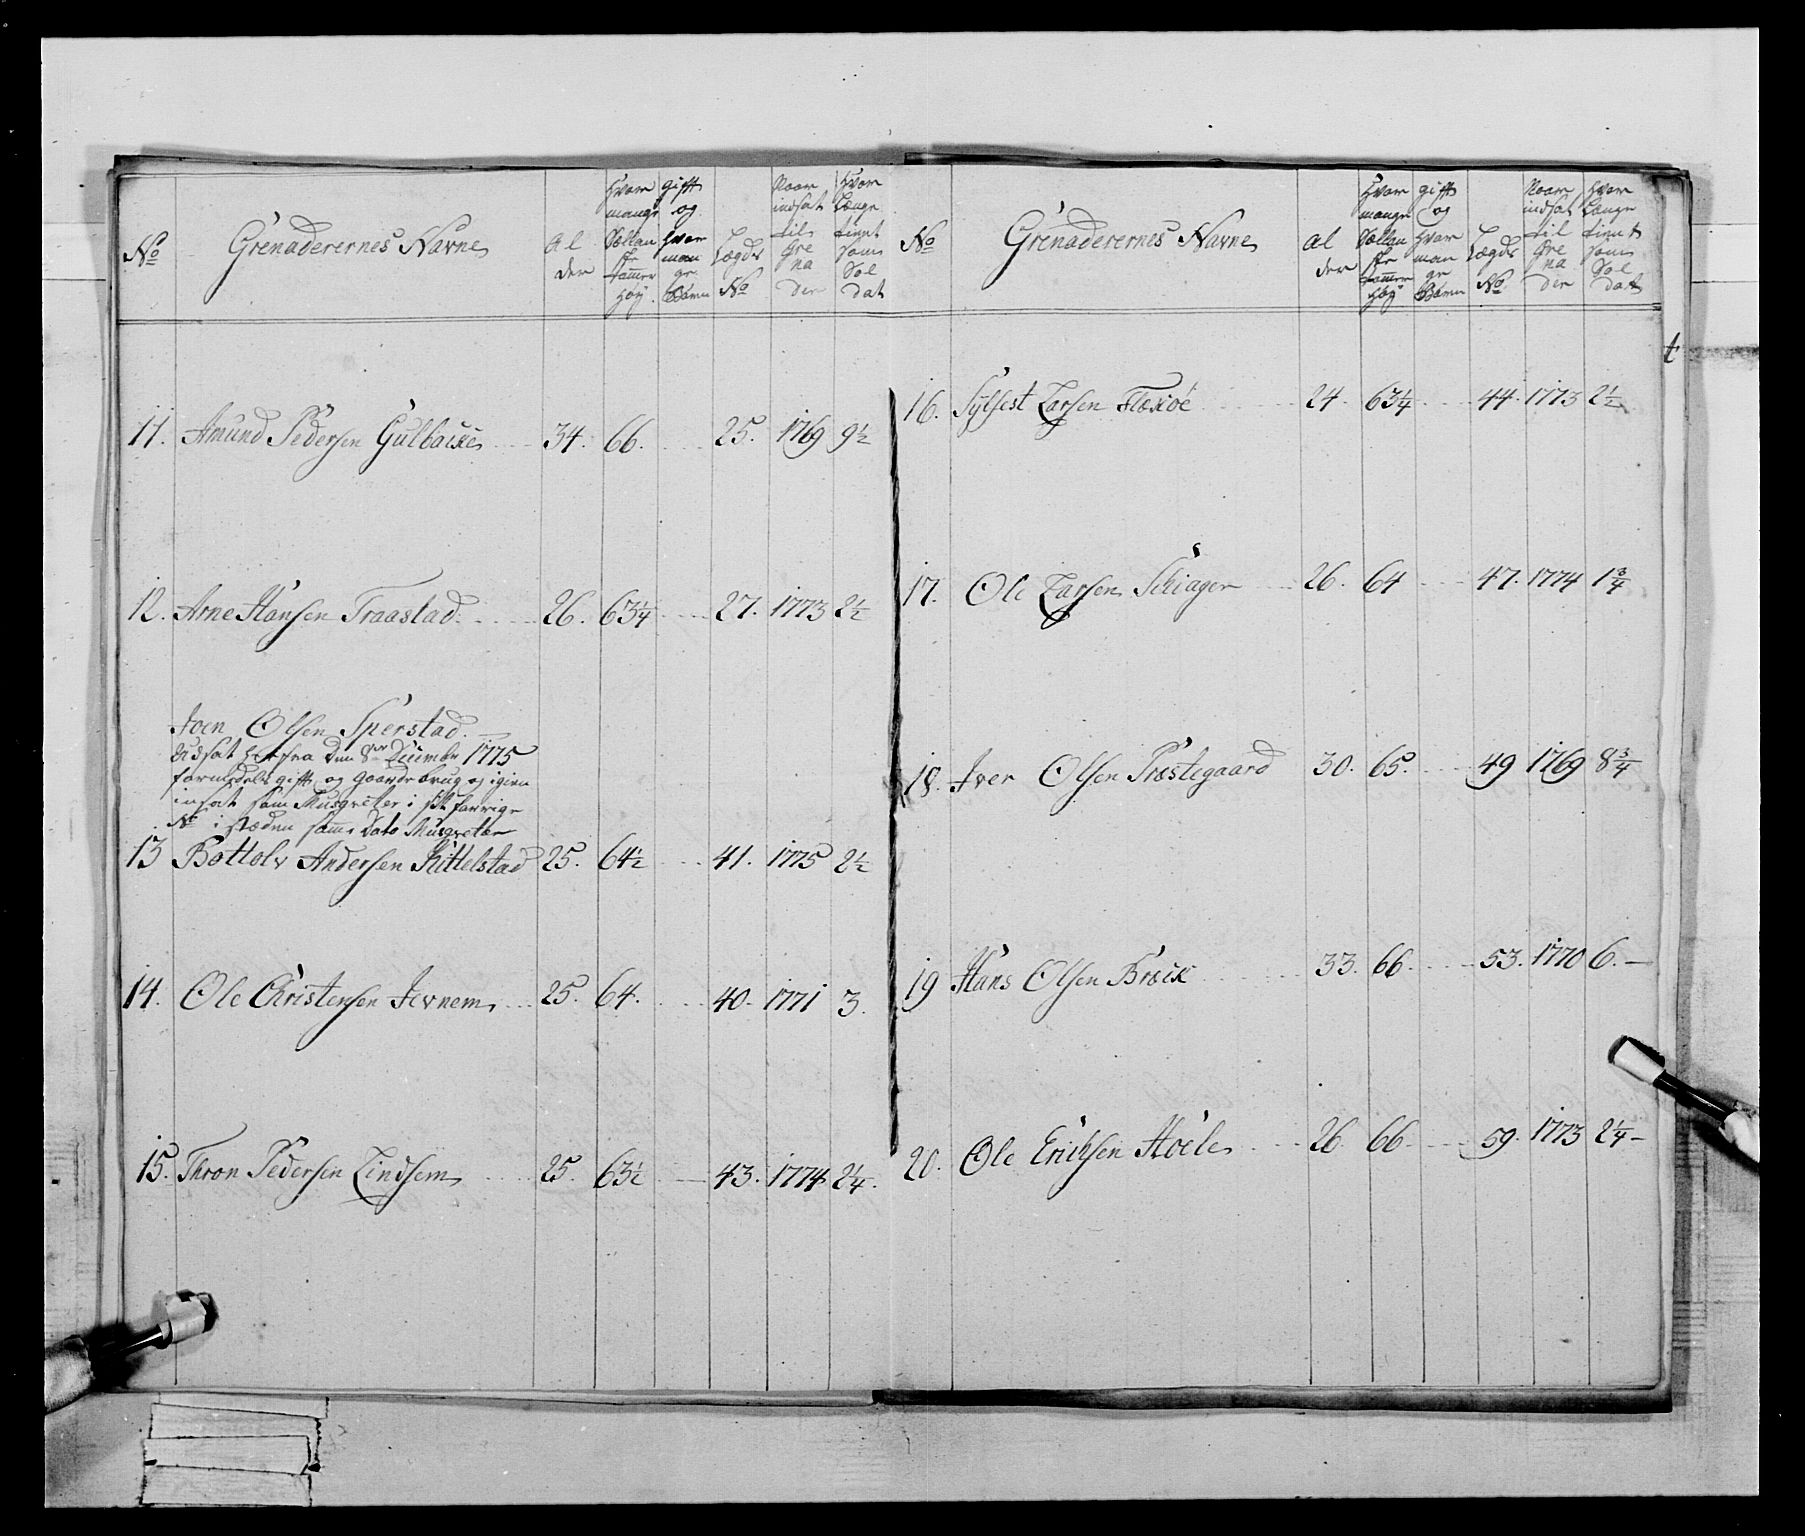 No Grenaderernes Navne Al der Hvor mange Sællan ske tommer høy gift og hvor man ge Børn Lægds No Naar indsat til Gre na der Hvor Længe tient som Sol dat
11. Amund Pedersen Gulbache 34. 66. 25. 1769 9½
12. Arne Hansen Traastad 26. 63¼ 27. 1773 2½
Joen Olsen Sperstad.
udsat herfra den 8de Decembr 1775
formedelst gift og Gaardebrug og igien
insat som Musqveter i sit forrige
No i stæden samme Dato Musqveter
13 Bottolv Andersen Kittelstad 25. 64½ 41. 1775 2½
14. Ole Christensen Jevnem 25. 64. 40. 1771 3.
15. Thron Pedersen Lindsem 25. 63½ 43. 1774 2¼.
No Grenaderernes Navne Al der Hvor mange Sællan ske tommer høy gift og hvor man ge Børn Lægds No Naar indsat til Gre na der Hvor Længe tient som Sol dat
16. Sylfest Larsen Flækøe 24. 63¼ 44. 1773 2½
17. Ole Larsen Schiager 26. 64 47. 1774 1¾
18. Iver Olsen Præstegaard 30. 65. 49 1769 8¾
19 Hans Olsen Bræck 33. 66. 53. 1770 6.
20. Ole Erichsen Hoele 26. 66 59. 1773 2¼